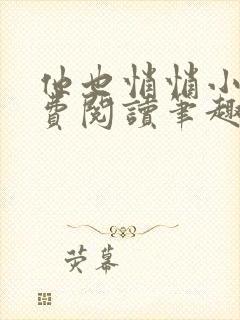 他也悄悄小
費閱讀筆趣
荧幕